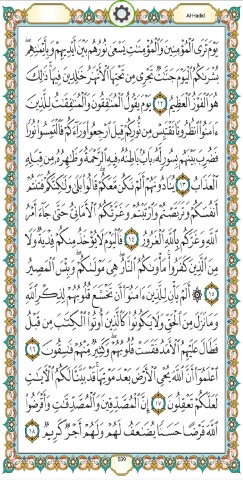 Al-Hadid
يَوْمَ تَرَى ٱلْمُؤْمِنِينَ وَٱلْمُؤْمِنَٰتِ يَسْعَىٰ نُورُهُم بَيْنَ أَيْدِيهِمْ وَبِأَيْمَٰنِهِم
بُشْرَىٰكُمُ ٱلْيَوْمَ جَنَّٰتٌ تَجْرِى مِن تَحْتِهَا ٱلْأَنْهَٰرُ خَٰلِدِينَ فِيهَا ذَٰلِكَ
هُوَ ٱلْفَوْزُ ٱلْعَظِيمُ ١٢ يَوْمَ يَقُولُ ٱلْمُنَٰفِقُونَ وَٱلْمُنَٰفِقَٰتُ لِلَّذِينَ
ءَامَنُوا۟ ٱنظُرُونَا نَقْتَبِسْ مِن نُّورِكُمْ قِيلَ ٱرْجِعُوا۟ وَرَآءَكُمْ فَٱلْتَمِسُوا۟ نُورًا
فَضُرِبَ بَيْنَهُم بِسُورٍ لَّهُۥ بَابٌۢ بَاطِنُهُۥ فِيهِ ٱلرَّحْمَةُ وَظَٰهِرُهُۥ مِن قِبَلِهِ
ٱلْعَذَابُ ١٣ يُنَادُونَهُمْ أَلَمْ نَكُن مَّعَكُمْ قَالُوا۟ بَلَىٰ وَلَٰكِنَّكُمْ فَتَنتُمْ
أَنفُسَكُمْ وَتَرَبَّصْتُمْ وَٱرْتَبْتُمْ وَغَرَّتْكُمُ ٱلْأَمَانِىُّ حَتَّىٰ جَآءَ أَمْرُ
ٱللَّهِ وَغَرَّكُم بِٱللَّهِ ٱلْغَرُورُ ١٤ فَٱلْيَوْمَ لَا يُؤْخَذُ مِنكُمْ فِدْيَةٌ وَلَا
مِنَ ٱلَّذِينَ كَفَرُوا۟ مَأْوَىٰكُمُ ٱلنَّارُ هِىَ مَوْلَىٰكُمْ وَبِئْسَ ٱلْمَصِيرُ
١٥ أَلَمْ يَأْنِ لِلَّذِينَ ءَامَنُوٓا۟ أَن تَخْشَعَ قُلُوبُهُمْ لِذِكْرِ ٱللَّهِ
وَمَا نَزَلَ مِنَ ٱلْحَقِّ وَلَا يَكُونُوا۟ كَٱلَّذِينَ أُوتُوا۟ ٱلْكِتَٰبَ مِن قَبْلُ
فَطَالَ عَلَيْهِمُ ٱلْأَمَدُ فَقَسَتْ قُلُوبُهُمْ وَكَثِيرٌ مِّنْهُمْ فَٰسِقُونَ ١٦
ٱعْلَمُوٓا۟ أَنَّ ٱللَّهَ يُحْىِ ٱلْأَرْضَ بَعْدَ مَوْتِهَا قَدْ بَيَّنَّا لَكُمُ ٱلْءَايَٰتِ
لَعَلَّكُمْ تَعْقِلُونَ ١٧ إِنَّ ٱلْمُصَّدِّقِينَ وَٱلْمُصَّدِّقَٰتِ وَأَقْرَضُوا۟
ٱللَّهَ قَرْضًا حَسَنًا يُضَٰعَفُ لَهُمْ وَلَهُمْ أَجْرٌ كَرِيمٌ ١٨
539